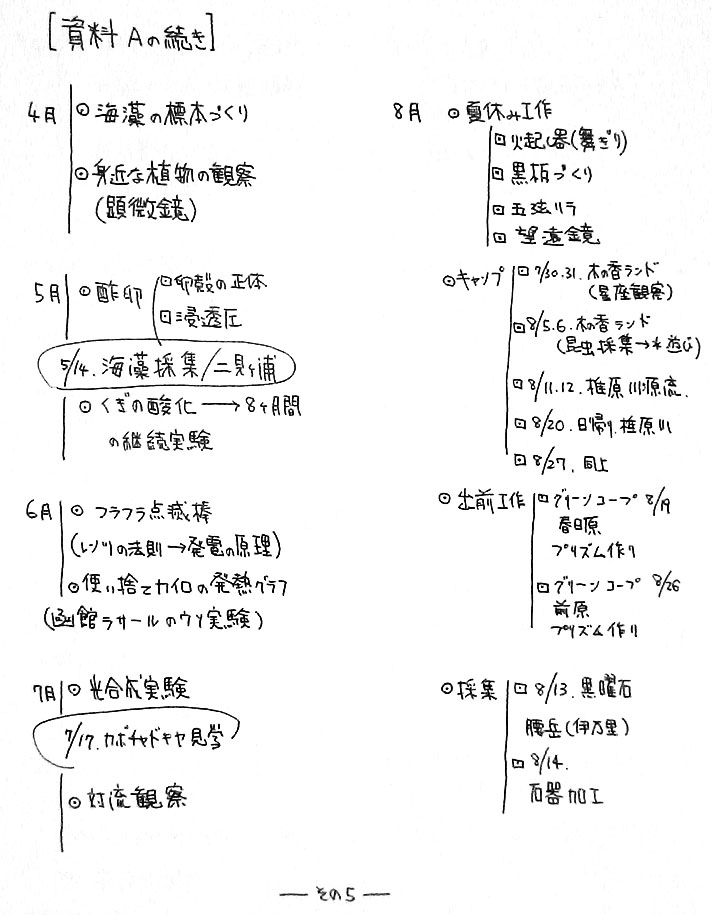 [資料 Aの続き]
4月
⊙ 海藻の標本づくり
⊙ 身近な植物の観察
(顕微鏡)
5月
⊙ 酢卵
⊡ 卵殻の正体
⊡ 浸透圧
5/14. 海藻採集/二見ヶ浦
⊙ くぎの酸化 → 8ヶ月間
の継続実験
6月
⊙ フラフラ点滅棒
(レンツの法則→発電の原理)
⊙ 使い捨てカイロの発熱グラフ
(函館ラサールのウソ実験)
7月
⊙ 光合成実験
7/17. カボチャドキヤ見学
⊙ 対流観察
8月
⊙ 夏休み工作
⊡ 火起し器(舞ぎり)
⊡ 黒板づくり
⊡ 五弦リラ
⊡ 望遠鏡
⊙ キャンプ
⊡ 7/30.31. 木の香ランド
(星座観察)
⊡ 8/5.6. 木の香ランド
(昆虫採集→水遊び)
⊡ 8/11.12. 椎原川源流.
⊡ 8/20. 日帰り. 椎原川
⊡ 8/27. 同上
⊙ 出前工作
⊡ グリーンコープ 8/19
春日原
プリズム作り
⊡ グリーンコープ 8/26
前原
プリズム作り
⊙ 採集
⊡ 8/13. 黒曜石
腰岳(伊万里)
⊡ 8/14.
石器加工
— その5 —